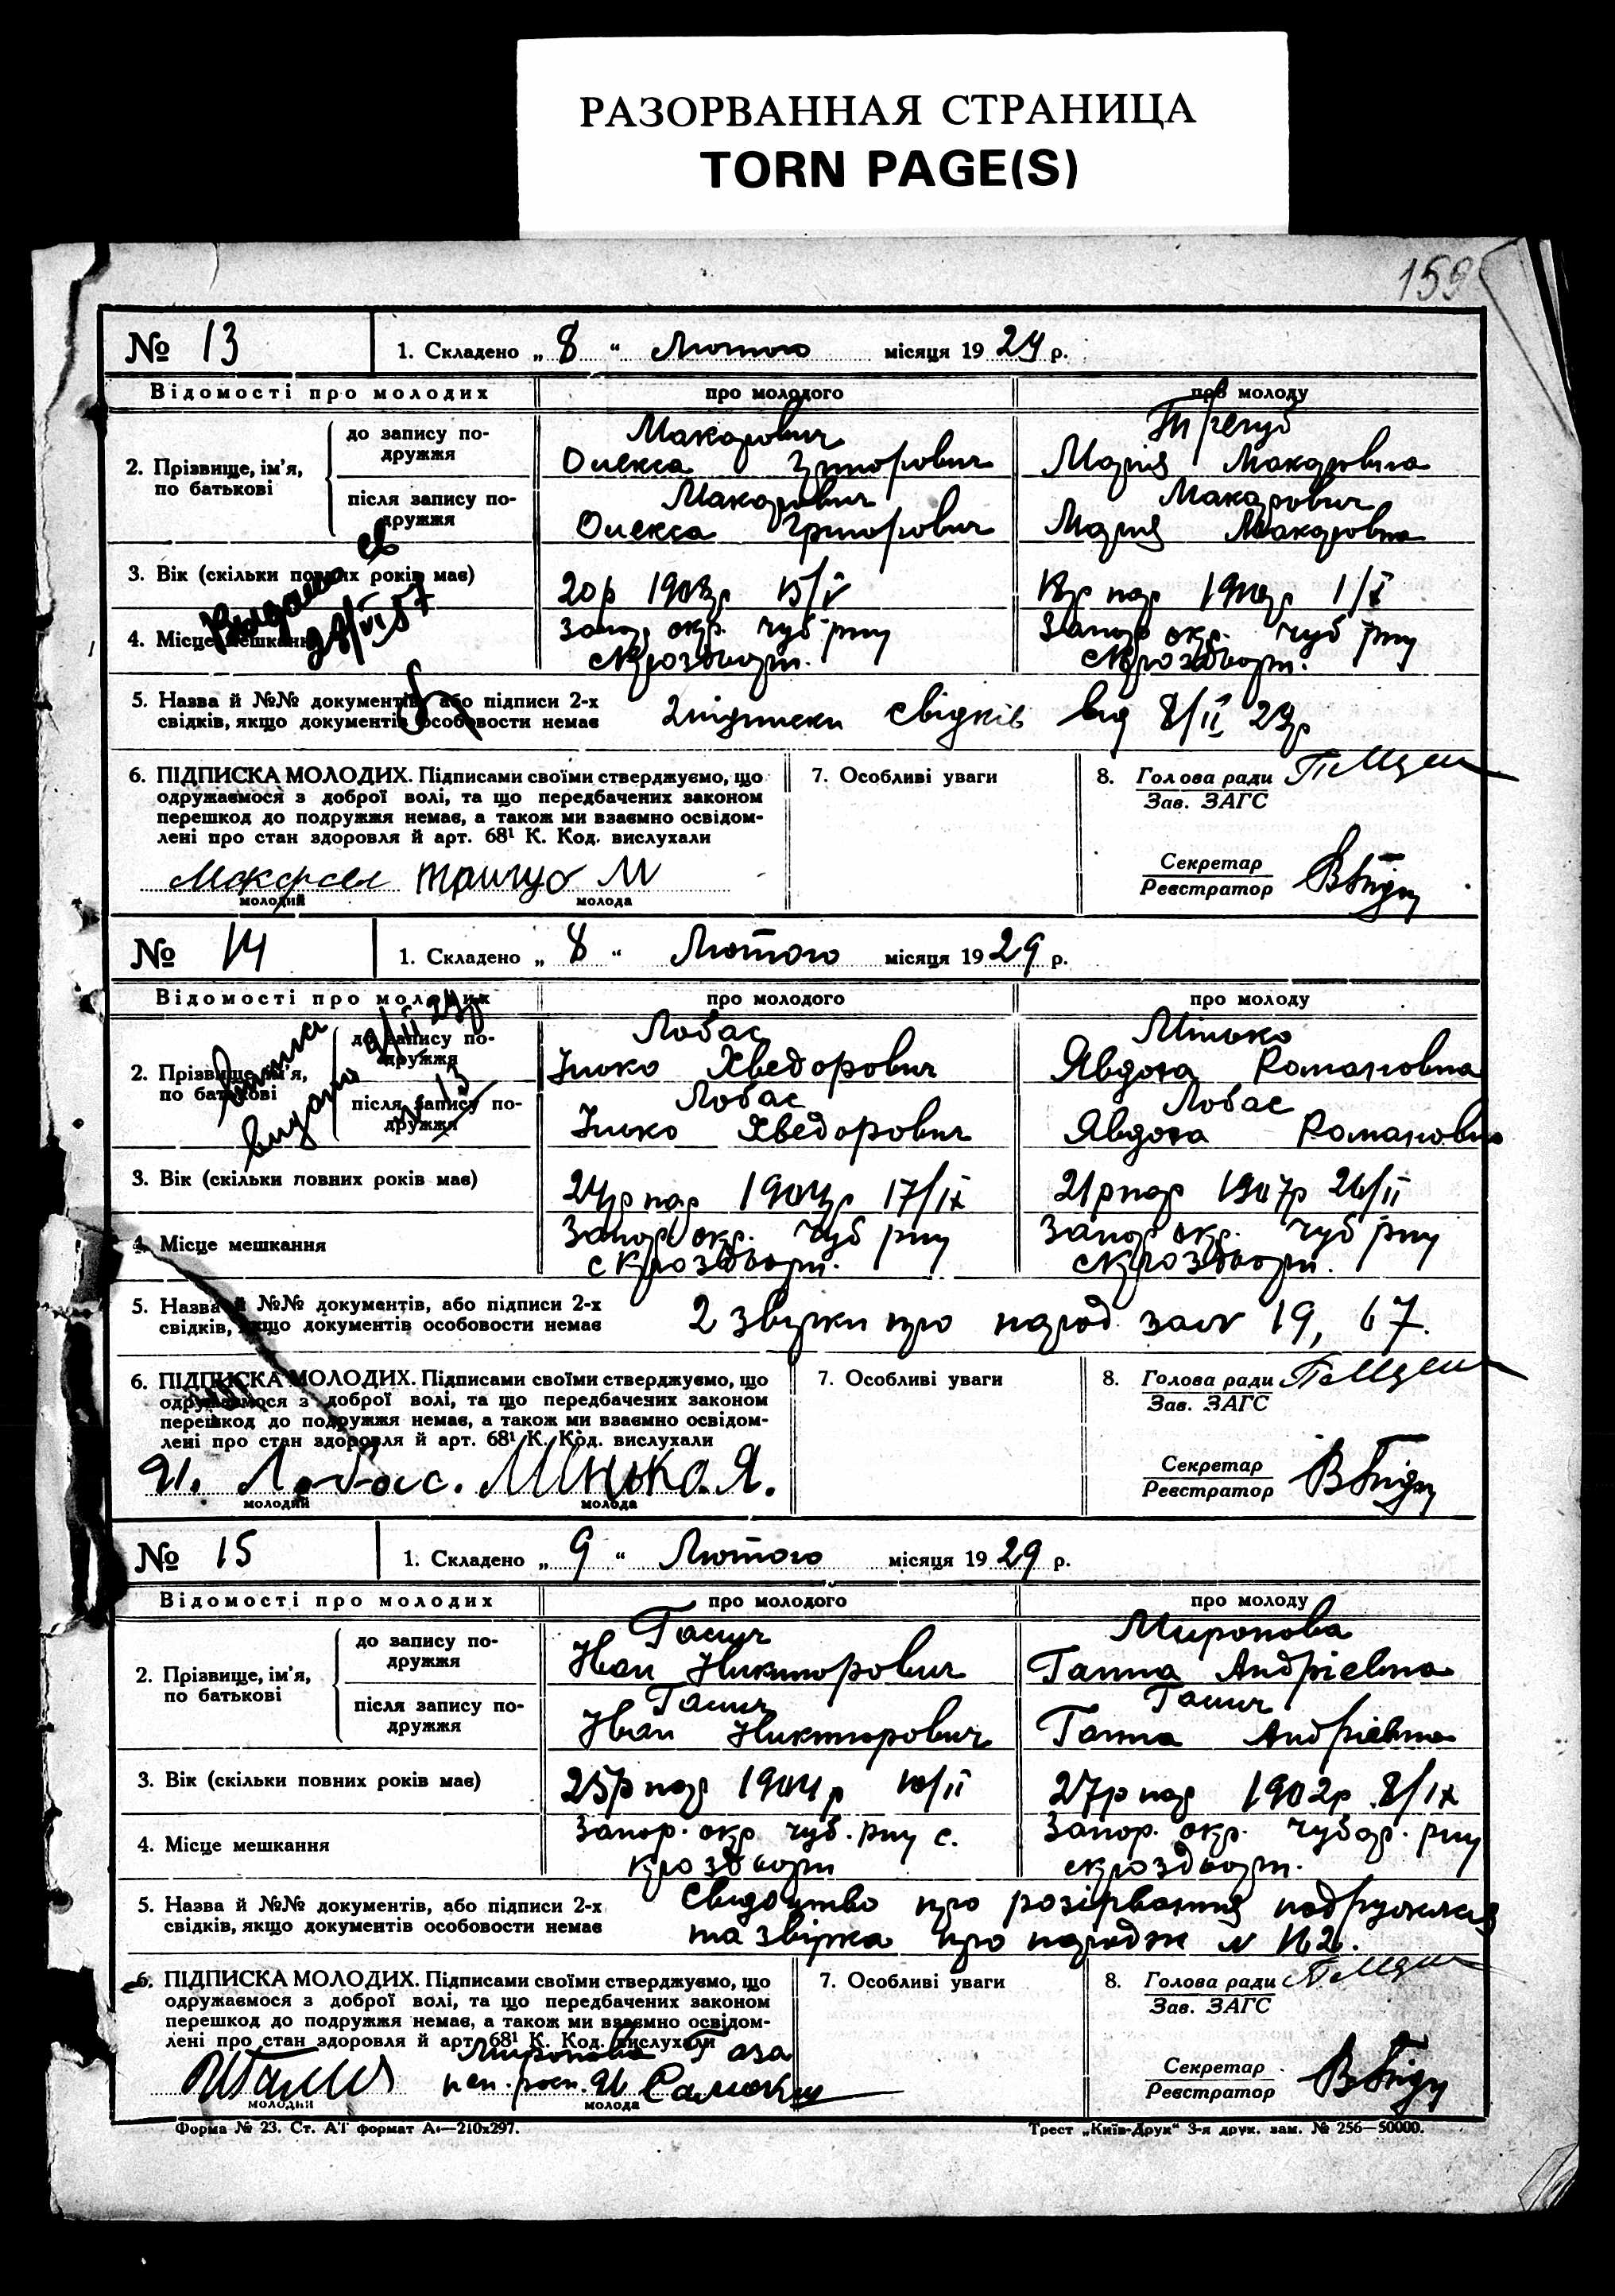 РАЗОРВАННАЯ СТРАНИЦА
TORN PAGE(S)
159
№ 13
1. Складено „ 8 “ Лютого місяця 19 29 р.
Відомості про молодих
про молодого
про молоду
2. Прізвище, ім’я, по батькові
до запису подружжя
Макарович
Олекса Григорович
Тригуб
Мария Макаровна
після запису подружжя
Макарович
Олекса Григорович
Макарович
Мария Макаровна
3. Вік (скільки повних років має)
20р 1908р 15/V
18р нар 1910р 1/X
4. Місце мешкання
Запор. окр. чуб рну
с Кроздвори.
Запор окр. чуб рну
с Кроздвори.
28/VI 57
5. Назва й №№ документів, або підписи 2-х
свідків, якщо документів особовости немає
2 підписки свідків від 8/II 29р
6. ПІДПИСКА МОЛОДИХ. Підписами своїми стверджуємо, що
одружаємося з доброї волі, та що передбачених законом
перешкод до подружжя немає, а також ми взаємно освідом-
лені про стан здоровля й арт. 68¹ К. Код. вислухали
Тригуб М
молодий
молода
7. Особливі уваги
8. Голова ради
Зав. ЗАГС
Секретар
Реєстратор
№ 14
1. Складено „ 8 “ Лютого місяця 19 29 р.
Відомості про молодих
про молодого
про молоду
2. Прізвище, ім’я, по батькові
до запису подружжя
Лобас
Ілько Хведорович
Мінько
Явдоха Романовна
після запису подружжя
Лобас
Ілько Хведорович
Лобас
Явдоха Романовна
видано 9/II 29р
№ 13
3. Вік (скільки повних років має)
24р нар 1904р 17/IX
21р нар 1907р 26/II
4. Місце мешкання
Запор окр. чуб рну
с Кроздвори.
Запор окр. чуб рну
с Кроздвори.
5. Назва й №№ документів, або підписи 2-х
свідків, якщо документів особовости немає
2 звірки про народ за № 19, 67.
6. ПІДПИСКА МОЛОДИХ. Підписами своїми стверджуємо, що
одружаємося з доброї волі, та що передбачених законом
перешкод до подружжя немає, а також ми взаємно освідом-
лені про стан здоровля й арт. 68¹ К. Код. вислухали
И. Лобас. Мінько. Я.
молодий
молода
7. Особливі уваги
8. Голова ради
Зав. ЗАГС
Секретар
Реєстратор
№ 15
1. Складено „ 9 “ Лютого місяця 19 29 р.
Відомості про молодих
про молодого
про молоду
2. Прізвище, ім’я, по батькові
до запису подружжя
Галич
Иван Никторович
Миронова
Ганна Андріевна
після запису подружжя
Галич
Иван Никторович
Галич
Ганна Андріевна
3. Вік (скільки повних років має)
25р нар 1904р 10/II
27р нар 1902р 8/IX
4. Місце мешкання
Запор. окр чуб. рну с.
Кроздвори
Запор. окр. Чубар. рну
с Кроздвори.
5. Назва й №№ документів, або підписи 2-х
свідків, якщо документів особовости немає
Свидоцтво про розірвання подружжия
та звірка про народж № 162.
6. ПІДПИСКА МОЛОДИХ. Підписами своїми стверджуємо, що
одружаємося з доброї волі, та що передбачених законом
перешкод до подружжя немає, а також ми взаємно освідом-
лені про стан здоровля й арт. 68¹ К. Код. вислухали
Миронова
молодий
молода
7. Особливі уваги
8. Голова ради
Зав. ЗАГС
Секретар
Реєстратор
Форма № 23. Ст. АІ формат А₄—210x297.
Трест „Київ-Друк“ 3-я друк. зам. № 256—50000.